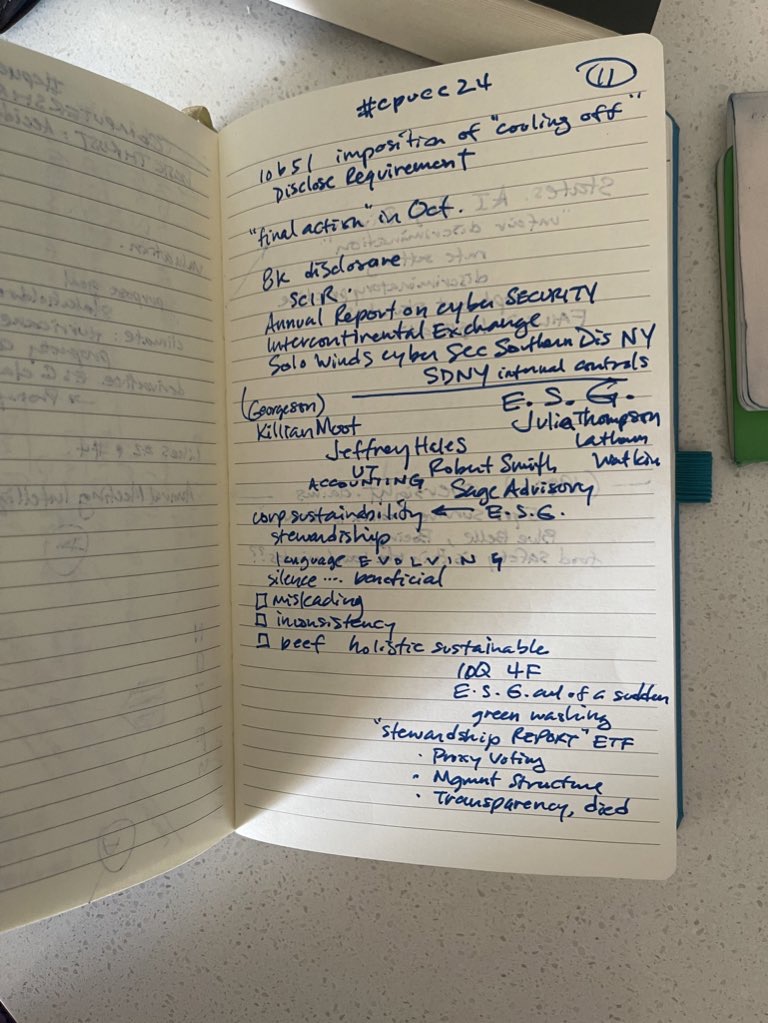 #cpuec24
11
10b51 imposition of "cooling off"
Disclose Requirement
"final action" in Oct.
8K disclosure
SCIR.
Annual Report on cyber SECURITY
Intercontinental Exchange
Solo Winds cyber Sec Southern Dis NY
SDNY internal controls
(Georgeson)
E. S. G.
Killian Moot
Julia Thompson
Latham
Watkin
Jeffrey Hales
UT
ACCOUNTING
Robert Smith
Sage Advisory
corp sustainability ← E.S.G.
stewardship
language EVOLVING
silence .... beneficial
□ misleading
□ inconsistency
□ beef holistic sustainable
10Q 4F
E.S.G. out of a sudden
green washing
"stewardship REPORT" ETF
· Proxy Voting
· Mgmnt Structure
· Transparency, died